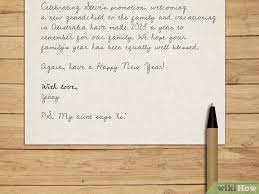 Celebrating Steve's promotion, welcoming
a new grandchild to the family and vacationing
in Australia have made 2013 a year to
remember for our family. We hope your
family's year has been equally well blessed.
Again, have a Happy New Year!
With love,
Jenny
P.S. My aunt says hi!
wikiHow